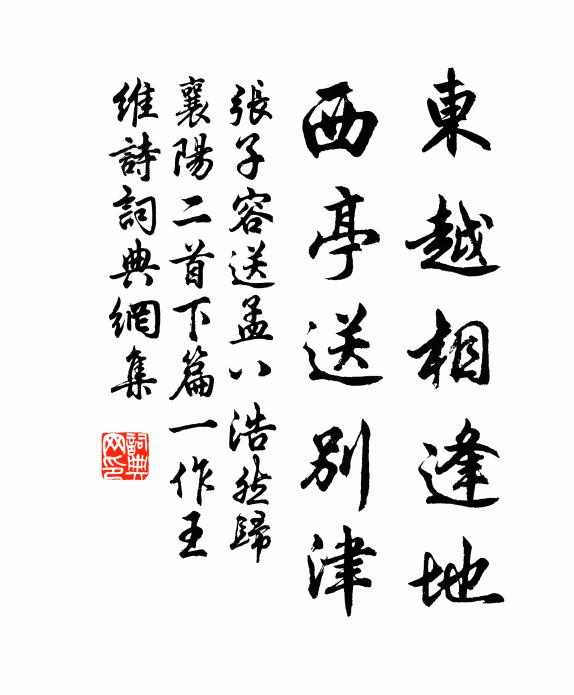 東越相逢地
西亭送別津
張子容送孟八浩然歸
襄陽二首下篇一作王
維詩詞典網集
詞典網印